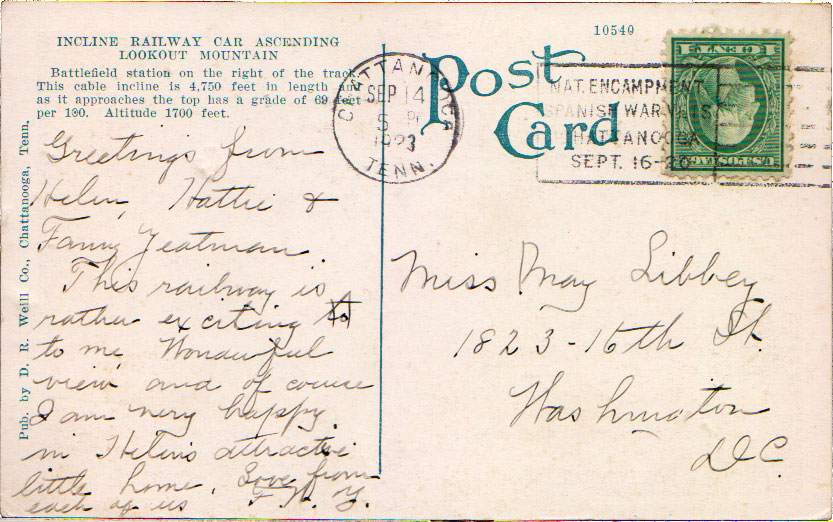 INCLINE RAILWAY CAR ASCENDING
LOOKOUT MOUNTAIN
Battlefield station on the right of the track.
This cable incline is 4,750 feet in length and
as it approaches the top has a grade of 69 feet
per 100. Altitude 1700 feet.
Pub. by D. R. Weill Co., Chattanooga, Tenn.
Greetings from
Helen, Hattie &
Fanny Yeatman.
This railway is
rather exciting to
to me Wonderful
view and of course
I am very happy
in Helen's attractive
little home. Love from
each of us F. H. Y.
10540
Post
Card
CHATTANOOGA
SEP 14
5 P
1923
TENN.
NAT. ENCAMPMENT
SPANISH WAR VETS
CHATTANOOGA
SEPT. 16-20
U.S. POSTAGE
1 CENT 1
Miss May Libbey
1823-16th St.
Washington
D.C.